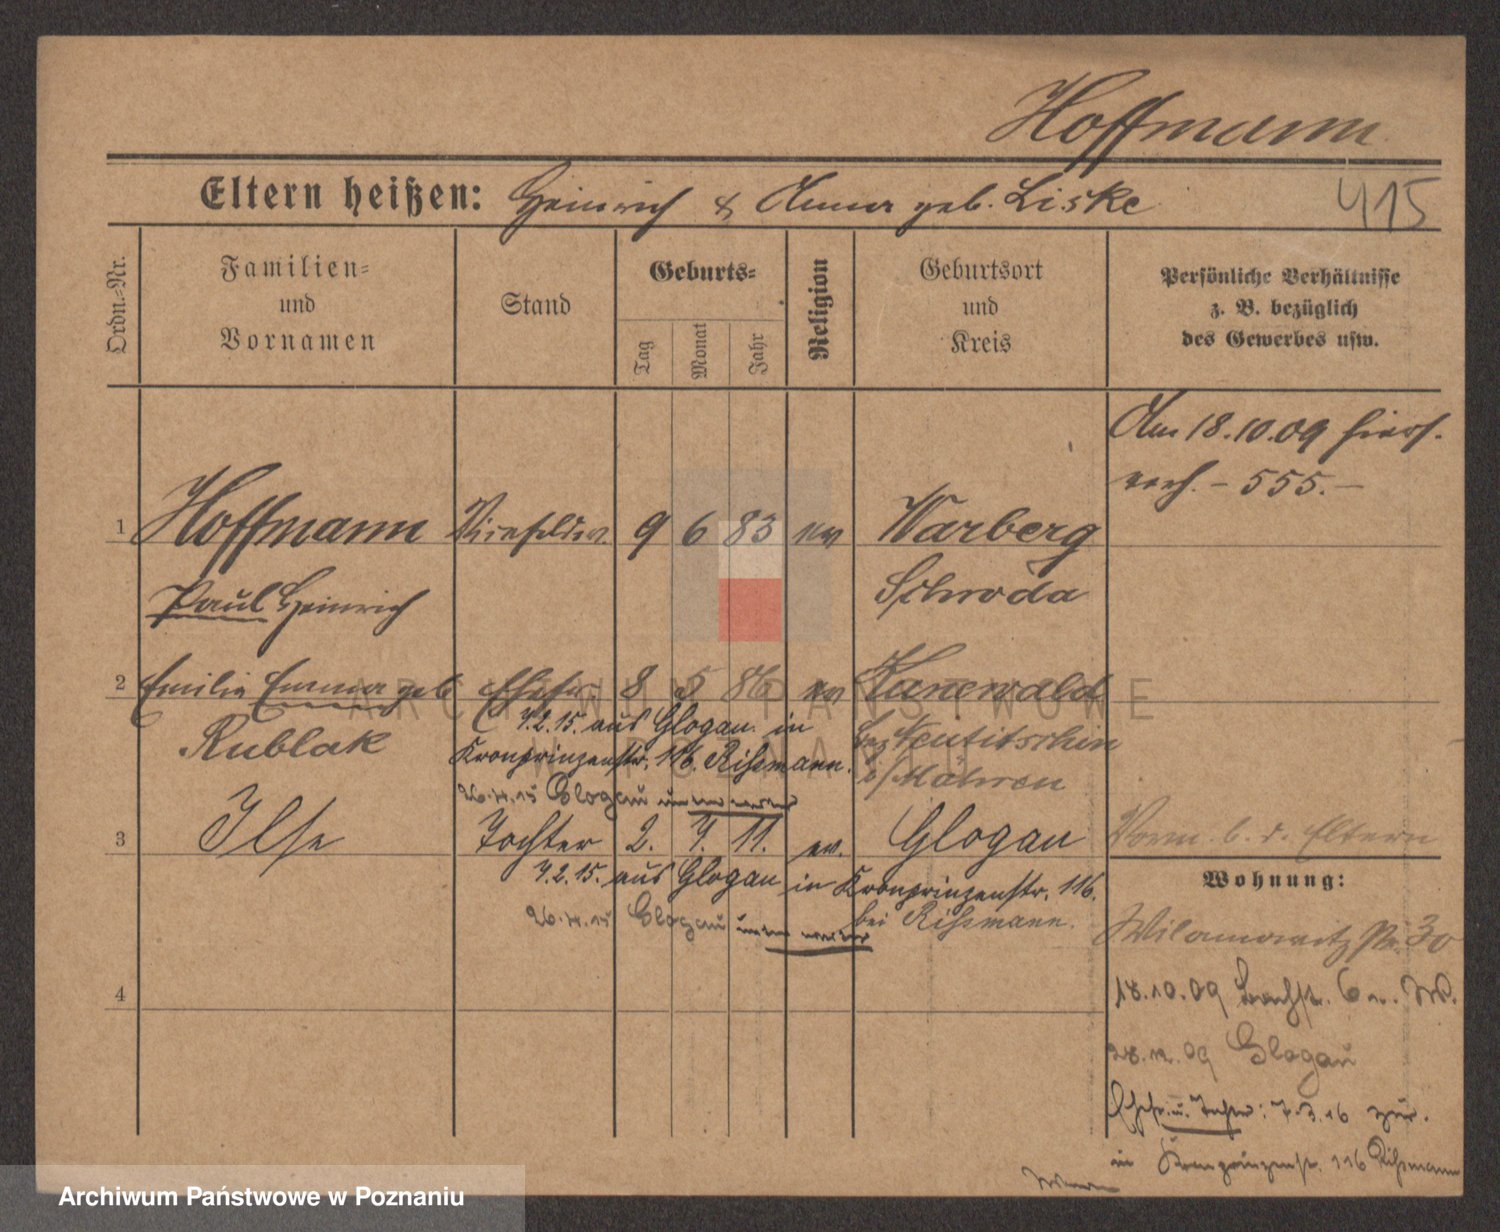 Hoffmann
Eltern heißen: Heinrich & Anna geb. Liske
415
Ordn.=Nr.
Familien=
und
Vornamen
Stand
Geburts=
Tag
Monat
Jahr
Religion
Geburtsort
und
Kreis
Persönliche Verhältnisse
z. B. bezüglich
des Gewerbes usw.
Am 18.10.09 hiers.
verh. – 555. –
1 Hoffmann 9 6 83 ev Warberg
Paul Heinrich Schroda
2 Emilie Emma geb Ehefr. 8 5 86 ev Kunewald
Rublak
7.2.15. aus Glogau in
Kronprinzenstr. 116. Rißmann.
26.4.15 Glogau
Bez Neutitschin
i/Mähren
3 Ilse Tochter 2. 7. 11. ev. Glogau
7.2.15. aus Glogau in Kronprinzenstr. 116.
bei Rißmann.
26.4.15 Glogau
Vorm. b. d. Eltern
Wohnung:
Wilamowitz Str. 30
18.10.09 6
28.12.09 Glogau
Ehefr. u. Tochter: 7.3.16 zur.
in Kronprinzenstr. 116 Rißmann
4
ARCHIWUM PAŃSTWOWE
W POZNANIU
Archiwum Państwowe w Poznaniu